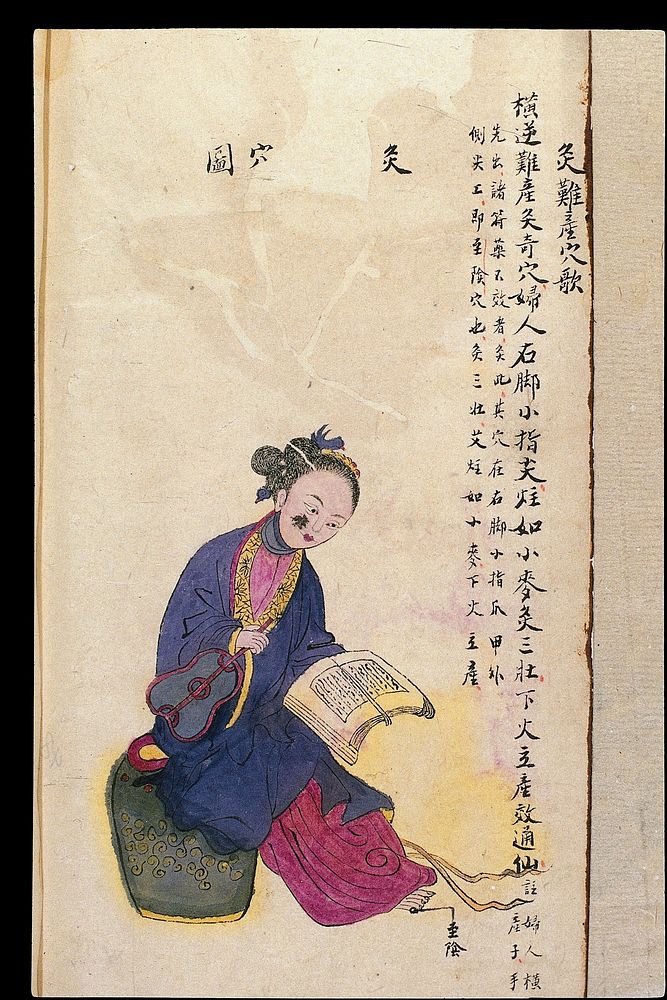 灸難產穴歌
橫逆難產灸奇穴婦人右脚小指尖炷如小麥灸三壯下火立產效通仙註婦人橫產子手
先出諸符藥不效者灸此其穴在右脚小指爪甲外
側尖上即至陰穴也灸三壯艾炷如小麥下火立產
灸
穴
圖
至陰